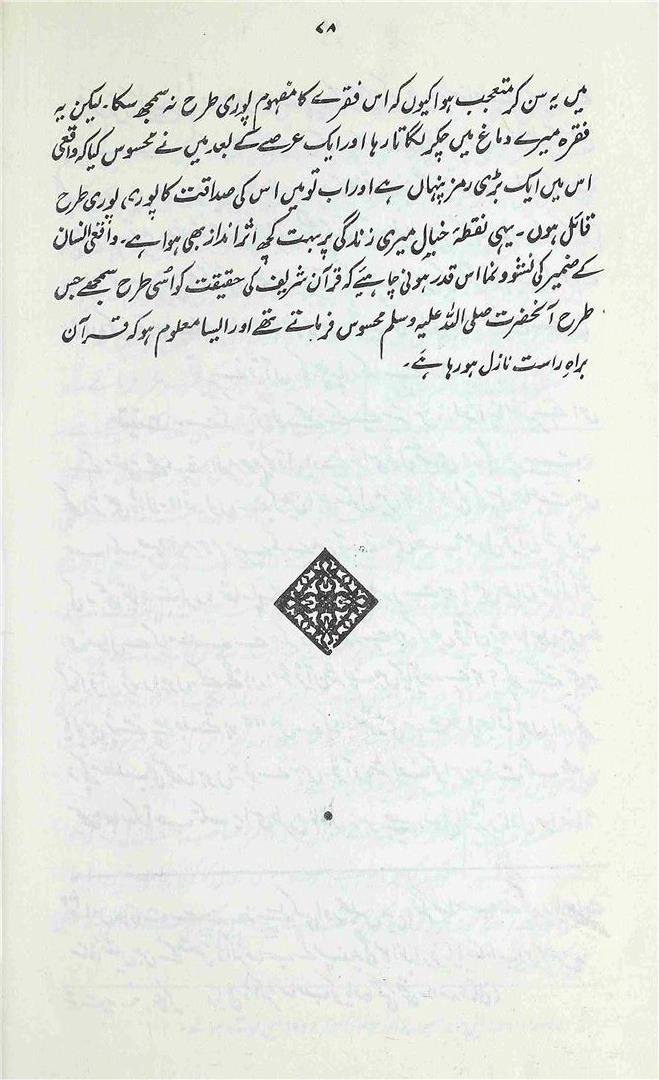 ۷۸
میں یہ سن کر متعجب ہوا کیوں کہ اس فقرے کا مفہوم پوری طرح نہ سمجھ سکا۔ لیکن یہ
فقرہ میرے دماغ میں چکر لگاتا رہا اور ایک عرصے کے بعد میں نے محسوس کیا کہ واقعی
اس میں ایک بڑی رمز پنہاں ہے اور اب تو میں اس کی صداقت کا پوری پوری طرح
قائل ہوں۔ یہی نقطۂ خیال میری زندگی پر بہت کچھ اثر انداز بھی ہوا ہے۔ واقعی انسان
کے ضمیر کی نشوونما اس قدر ہونی چاہیئے کہ قرآن شریف کی حقیقت کو اسُی طرح سمجھے جس
طرح آنحضرت صلی اللہ علیہ وسلم محسوس فرماتے تھے اور ایسا معلوم ہو کہ قرآن
براہِ راست نازل ہو رہا ہے۔